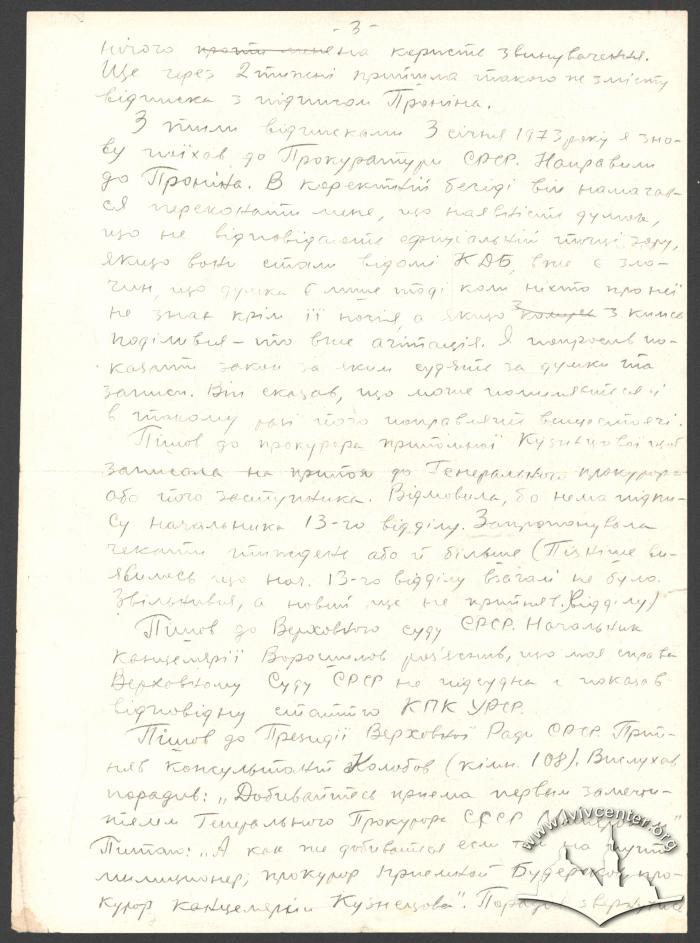 - 3 -
нічого проти мене на користь звинувачення.
Ще через 2 тижні прийшла такого ж змісту
відписка з підписом Проніна.
З тими відписками 3 січня 1973 року я зно-
ву поїхав до Прокуратури СРСР. Направили
до Проніна. В коректній бесіді він намагав-
ся переконати мене, що наявність думок,
що не відповідають офіціальній точці зору,
якщо вони стали відомі КДБ, вже є зло-
чин, що думка є лише тоді коли ніхто про неї
не знає крім її носія, а якщо з кимсь
поділився - то вже агітація. Я попросив по-
казати закон за яким судять за думки та
записи. Він сказав, що може помиляється і
в такому разі його поправлять вищестоячі.
Пішов до прокурора приймальної Кузнєцової щоб
записала на прийом до Генерального прокурора
або його заступника. Відмовила, бо нема підпи-
су начальника 13-го відділу. Запропонувала
чекати тиждень або й більше (Пізніше ви-
явилось що нач. 13-го відділу взагалі не було.
Звільнився, а новий ще не прийняв відділу)
Пішов до Верховного суду СРСР. Начальник
канцелярії Ворошилов роз'яснив, що моя справа
Верховному Суду СРСР не підсудна і показав
відповідну статтю КПК УРСР.
Пішов до Президії Верховної Ради СРСР. Прий-
няв консультант Колобов (кімн. 108). Вислухав
порадив: „Добивайтесь приема первым замести-
телем Генерального Прокурора СССР
Питаю: „А как же добиваться если там на пути
милиционер, прокурор приемной Будерской про-
курор канцелярии Кузнецова". Порадив звернутися
www.lvivcenter.org